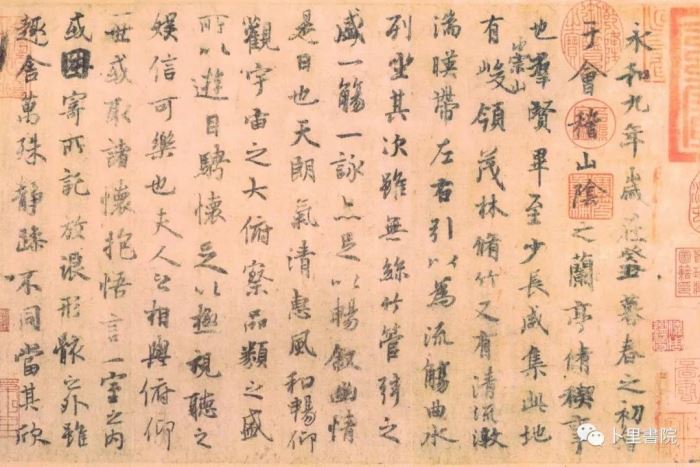 永和九年歲在癸丑暮春之初會
于會稽山陰之蘭亭脩禊事
也羣賢畢至少長咸集此地
有崇山峻領茂林脩竹又有清流激
湍暎帶左右引以為流觴曲水
列坐其次雖無絲竹管弦之
盛一觴一詠亦足以暢敘幽情
是日也天朗氣清惠風和暢仰
觀宇宙之大俯察品類之盛
所以遊目騁懷足以極視聽之
娛信可樂也夫人之相與俯仰
一世或取諸懷抱悟言一室之內
或因寄所託放浪形骸之外雖
趣舍萬殊靜躁不同當其欣
卜里書院